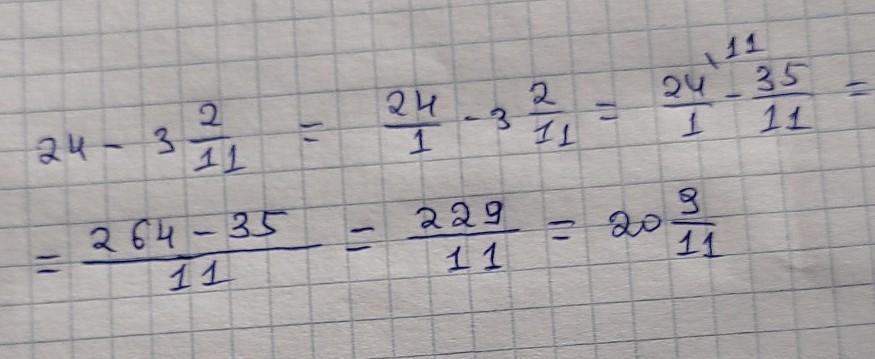 24 - 3 2/11 = 24/1 - 3 2/11 = 24/1 \11 - 35/11 =
= 264 - 35/11 = 229/11 = 20 9/11